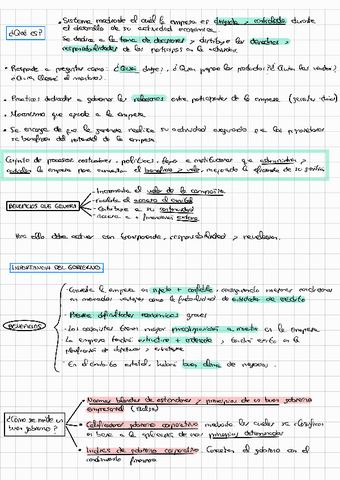 ¿Qué es?
• Sistema mediante el cuál la empresa es dirigida y controlada durante
el desarrollo de su actividad económica.
Se dedica a la toma de decisiones y distribuye los derechos y
responsabilidades de los partícipes en la actividad.
• Responde a preguntas como: ¿Quién dirige?, ¿Quien los productos? ¿Quién los vende?
¿Quién
• Prácticas dedicadas a gobernar las relaciones entre participantes de la empresa
• Mecanismo que ayuda a la empresa
• Se encarga de que la gerencia realice su actividad asegurando que los
se beneficien del potencial de la empresa.
Conjunto de procesos, costumbres, políticas, leyes e instituciones que administran y
controlan la empresa para aumentar el beneficio y valor, mejorando la eficiencia de su gestión
BENEFICIOS QUE GENERA
Incrementa el valor de la compañía
Facilita el acceso al capital
Contribuye a su sostenibilidad
Acceso a + financiación externa
Para ello debe actuar con transparencia, responsabilidad y
IMPORTANCIA DEL GOBIERNO
BENEFICIOS
Convierte la empresa en sujeto + confiable, consiguiendo mejores condiciones
en mercados, ventajas como la de crédito
Prevee dificultades económicas graves
Los accionistas tienen mayor en la empresa
La empresa tendrá estructura + ordenada, y tendrá en la
planificación de objetivos y
En el ámbito estatal, habrá buen clima de negocios.
¿Cómo se mide un
buen gobierno?
Normas básicas de estándares y principios de un buen gobierno
empresarial
Calificadoras gobierno corporativo mediante las cuales se clasifican
en base a la aplicación de unos principios determinados
Índices de gobierno corporativo. Conectan el gobierno con el
rendimiento financiero